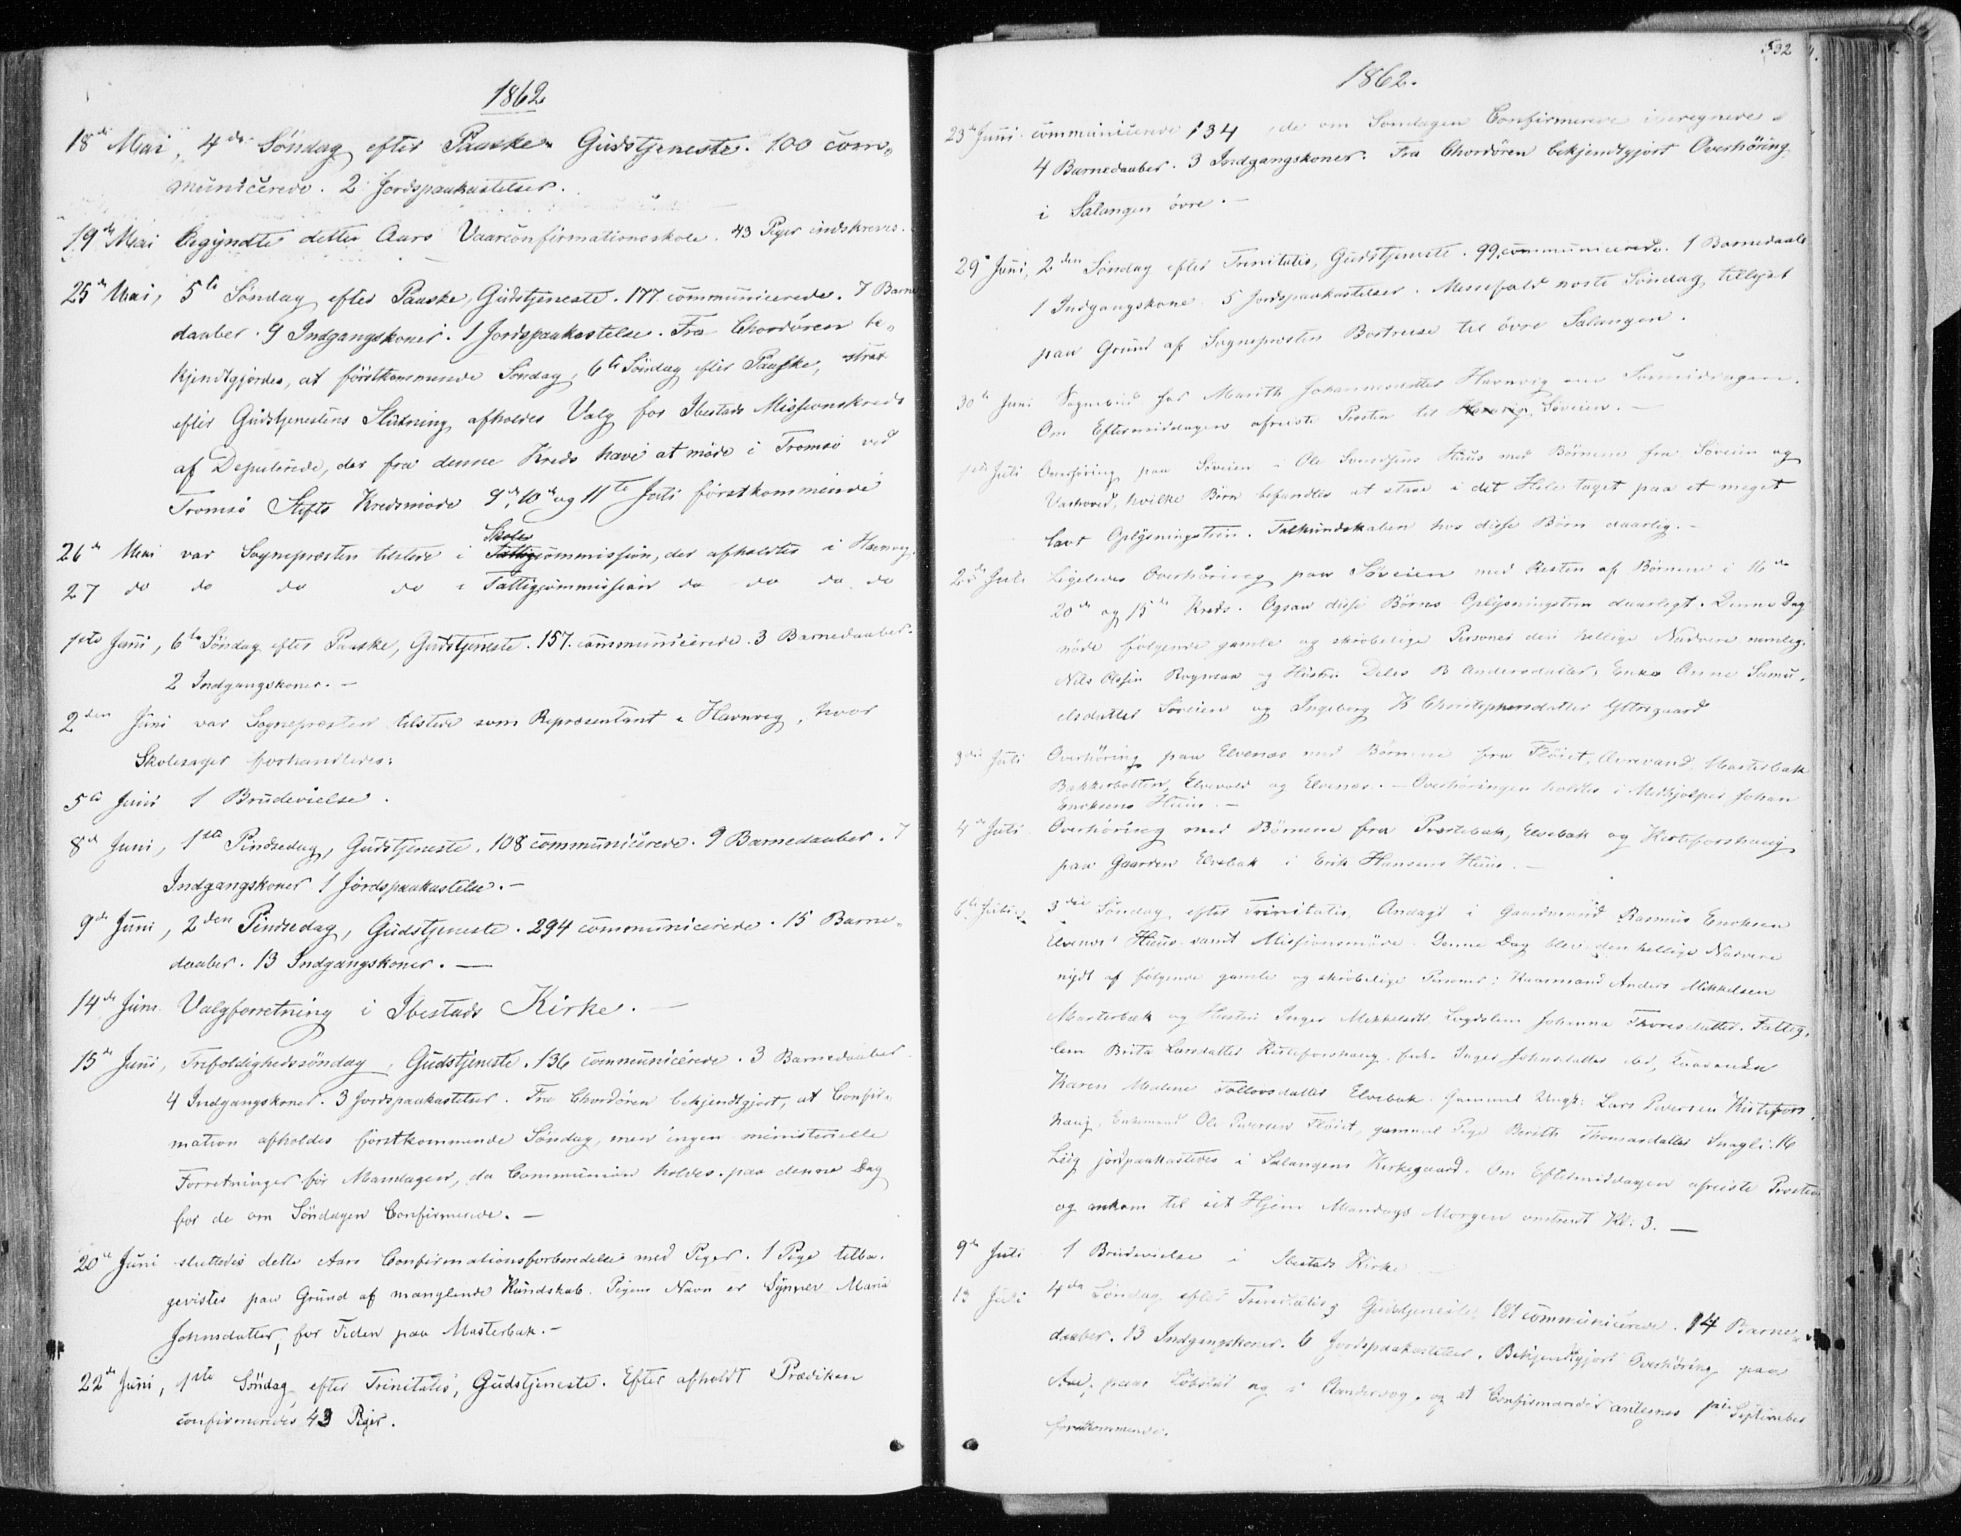 1862
18de Mai, 4de Søndag efter Paaske. Gudstjeneste. 100 com-
municerede. 2 Jordspaakastelser.
19de Mai begyndte dette Aars Vaarconfirmationsskole. 43 Piger indskreves.
25de Mai, 5te Søndag efter Paaske, Gudstjeneste. 177 communicerede. 7 Barne
daaber. 9 Indgangskoner. 1 Jordspaakastelse. Fra Chordøren be-
kjendtgjordes, at førstkommende Søndag, 6te Søndag efter Paaske, strax
efter Gudstjenestens Slutning afholdes Valg for Ibestads Missionskreds
af Deputerede, der fra denne Kreds have at møde i Tromsø ved
Tromsø Stifts Kredsmøde 9de, 10de og 11te Juli førstkommende
26de Mai var Sognepresten tilstede i Skolecommission, der afholdtes i Havnvig.
27 do do do do i Fattigcommission do do do do
1ste Juni, 6te Søndag efter Paaske, Gudstjeneste. 157 communicerede. 3 Barnedaaber.
2 Indgangskoner. -
2den Juni var Sognepresten tilstede som Repræsentant i Havnvig, hvor
Skolesager forhandledes.
5te Juni 1 Brudevielse.
8de Juni, 1ste Pindsedag, Gudstjeneste. 108 communicerede. 9 Barnedaaber. 7
Indgangskoner 1 Jordspaakastelse. -
9de Juni, 2den Pindsedag, Gudstjeneste. 294 communicerede. 15 Barne-
daaber. 13 Indgangskoner. -
14de Juni Valgforretning i Ibestads Kirke. -
15de Juni, Trefoldighedssøndag, Gudstjeneste. 136 communicerede. 3 Barnedaaber
4 Indgangskoner. 3 Jordspaakastelser. Fra Chordøren bekjendtgjort, at Confir-
mation afholdes førstkommende Søndag, men ingen ministerielle
Forretninger før Mandagen, da Communion holdes paa denne Dag
for de om Søndagen Confirmerede. -
20de Juni sluttedes dette Aars Confirmationsforberedelse med Piger. 1 Pige tilba-
gevistes paa Grund af manglende Kundskab. Pigens Navn er Synner Maria
Johnsdatter, for Tiden paa Masterbak. -
22de Juni, 1ste Søndag efter Trinitatis, Gudstjeneste. Efter afholdt Prædiken
confirmeredes 43 Piger.
532
1862.
23de Juni communicerede 134 de om Søndagen Confirmerede iberegnede
4 Barnedaaber. 3 Indgangskoner. Fra Chordøren bekjendtgjort Overhøring
i Salangen øvre. -
29de Juni, 2den Søndag efter Trinitatis, Gudstjeneste. 99 communicerede. 1 Barnedaab
1 Indgangskone. 5 Jordspaakastelser. Messefald næste Søndag tillyst
paa Grund af Sogneprestens Bortreise til øvre Salangen.
30te Juni Sognebud for Marith Johannesdatter Havnvig om Formiddagen.
Om Eftermiddagen afreiste Presten til Søveien. -
1ste Juli Overhøring paa Søveien i Ole Huus med Børnene fra Søveien og
hvilke Børn befandtes at staae i det Hele taget paa et meget
lavt Oplysningstrin. Talkundskaben hos disse Børn daarlig. -
2den Juli Ligeledes Overhøring paa Søveien med Resten af Børnene i 16de
20de og 15de Kreds. Ogsaa disse Børns Oplysningstrin daarligt. Denne Dag
nøde følgende gamle og skrøbelige Personer den hellige Nadvere nemlig:
Nils Olsen og Hustru B Andersdatter, Enke Anne Samu-
elsdatter Søveien og Ingeborg K Christophersdatter
3die Juli Overhøring paa Elvenæs med Børnene fra Fløiet, Masterbak
Bakkerbotten, Elvevold og Elvenæs. - Overhøringen holdtes i Medhjelper Johan
Ericksens Huus. -
4de Juli Overhøring med Børnene fra Prestebak, Elvebak og Kirteforshaug
paa Gaarden Elvebak i Erik Hansens Huus. -
6te Juli 3die Søndag efter Trinitatis, Andagt i Gaardmand Rasmus Ericksen
Elvenæs' Huus samt Missionsmøde. Denne Dag blev den hellige Nadvere
nydt af følgende gamle og skrøbelige Personer: Anders Mikkelsen
Masterbak og Hustru Inger Johanna Thoresdatter. Fattig-
lem Brita Larsdatter Inger Johnsdatter
Karen Malene Elvebak. Lars Pedersen
haug, Enkemand Ole Pedersen Fløiet, gammel Pige Berith Thomasdatter 16
Liig jordpaakastedes i Salangens Kirkegaard. Om Eftermiddagen afreiste Presten
og ankom til sit Hjem Mandags Morgen omtrent Kl: 3. -
9de Juli 1 Brudevielse i Ibestads Kirke
13 Juli 4de Søndag efter Trinitatis, Gudstjeneste, 181 communicerede. 14 Barne-
daaber. 13 Indgangskoner. 6 Jordspaakastelser. Bekjendtgjort Overhøring paa
paa og i og at Confirmander antages September
førstkommende.